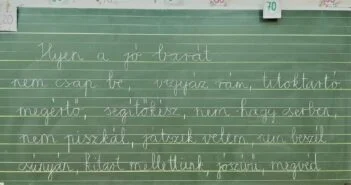 70
Ilyen a jó barát
nem csap be, vigyáz rám, titoktartó
megértő, segítőkész, nem hagy cserben,
nem piszkál, játszik velem, nem beszél
csúnyán, kitart mellettünk, jószívű, megvéd